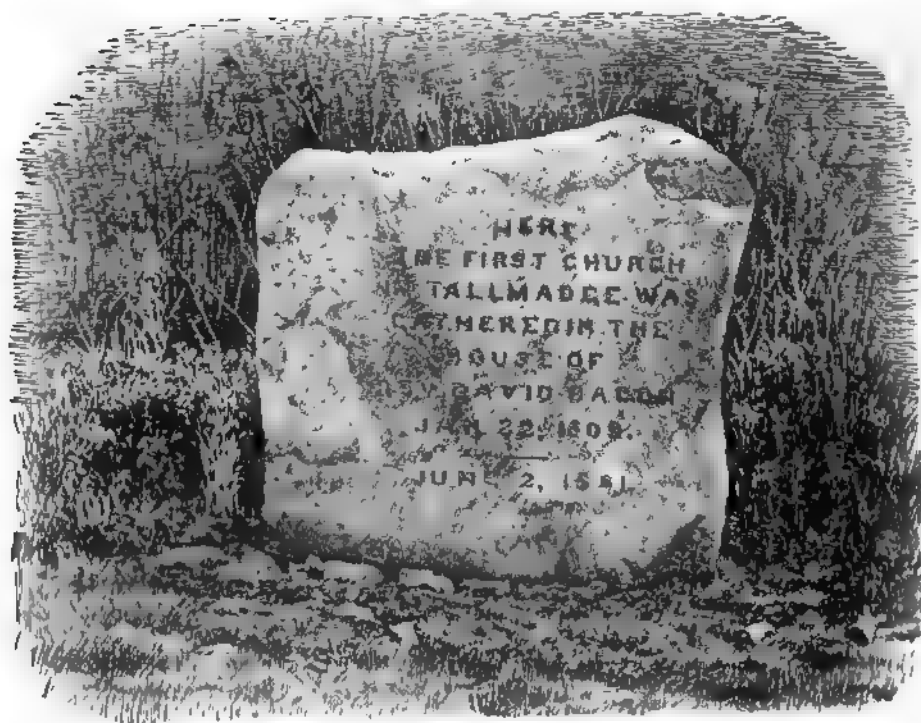 HERE
THE FIRST CHURCH
IN TALLMADGE WAS
GATHERED IN THE
HOUSE OF
DAVID BACON
JAN 22, 1809.
JUNE 2, 1881